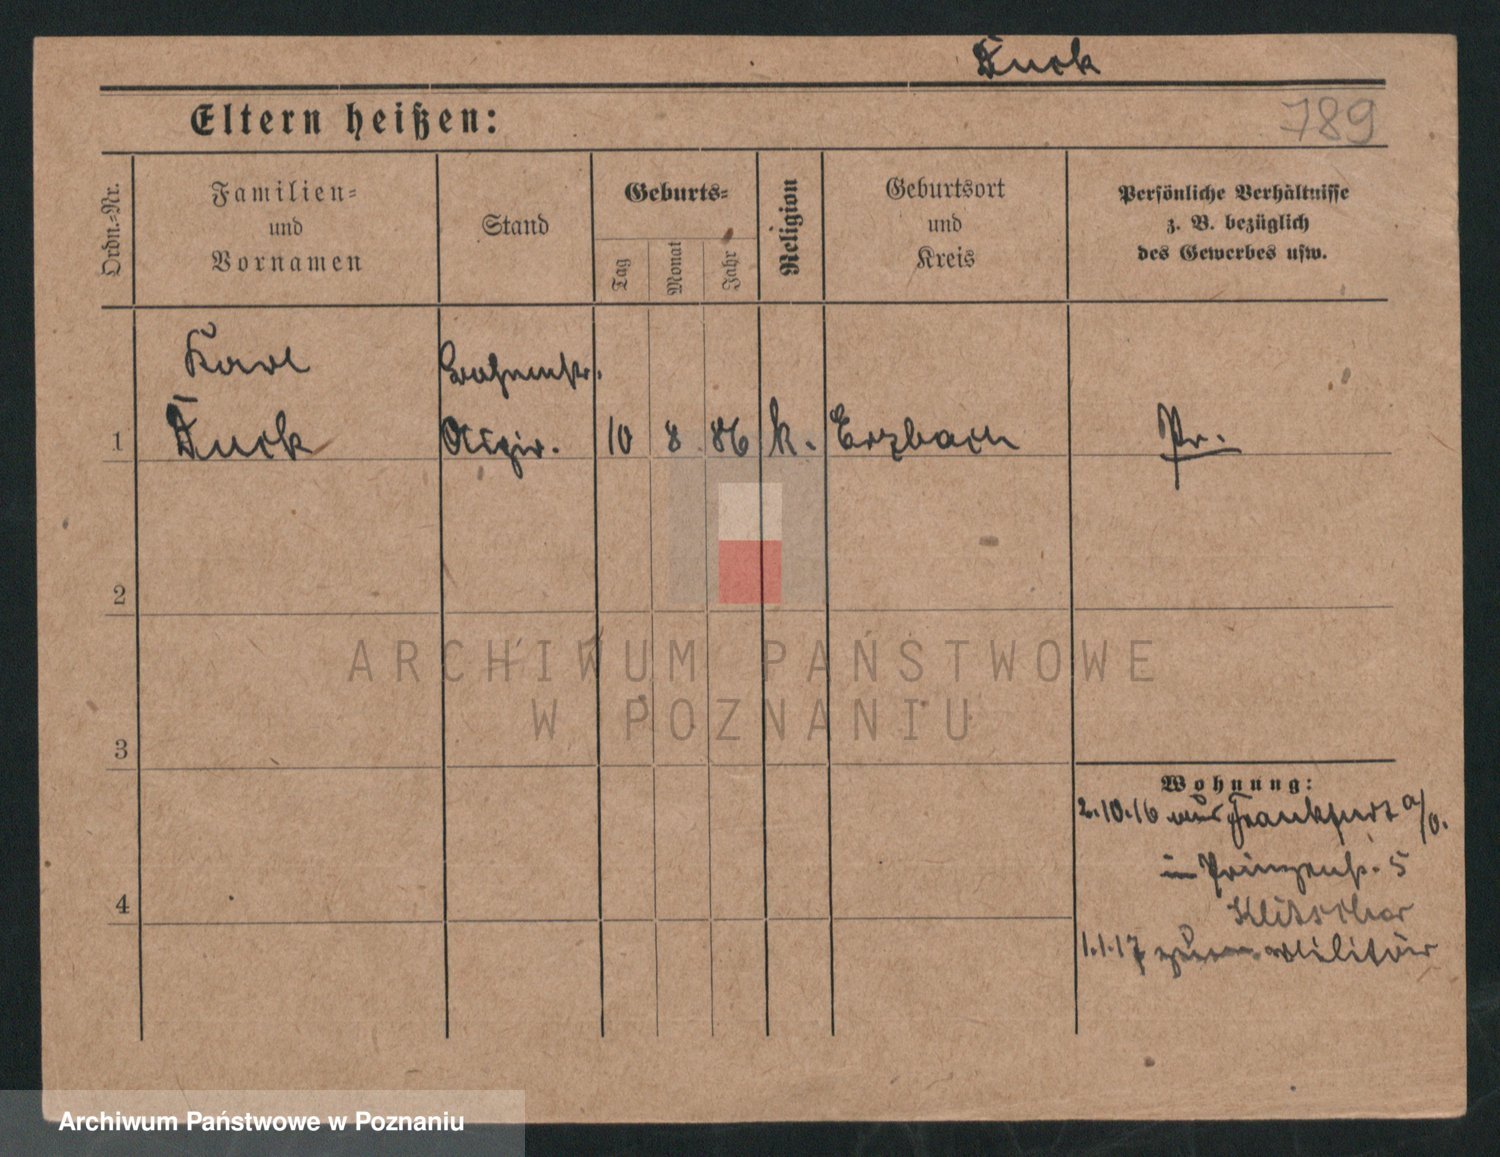 789
Eltern heißen:
Ordn.-Nr.
Familien-
und
Vornamen
Stand
Geburts-
Tag
Monat
Jahr
Religion
Geburtsort
und
Kreis
Persönliche Verhältnisse
z. B. bezüglich
des Gewerbes usw.
Karl
1
10 8 86 k. Erzbach Pr.
2
ARCHIWUM PAŃSTWOWE
W POZNANIU
3
Wohnung:
2.10.16 aus Frankfurt a/O.
in Prinzenstr. 5
4
1.1.17 zum Militär
Archiwum Państwowe w Poznaniu